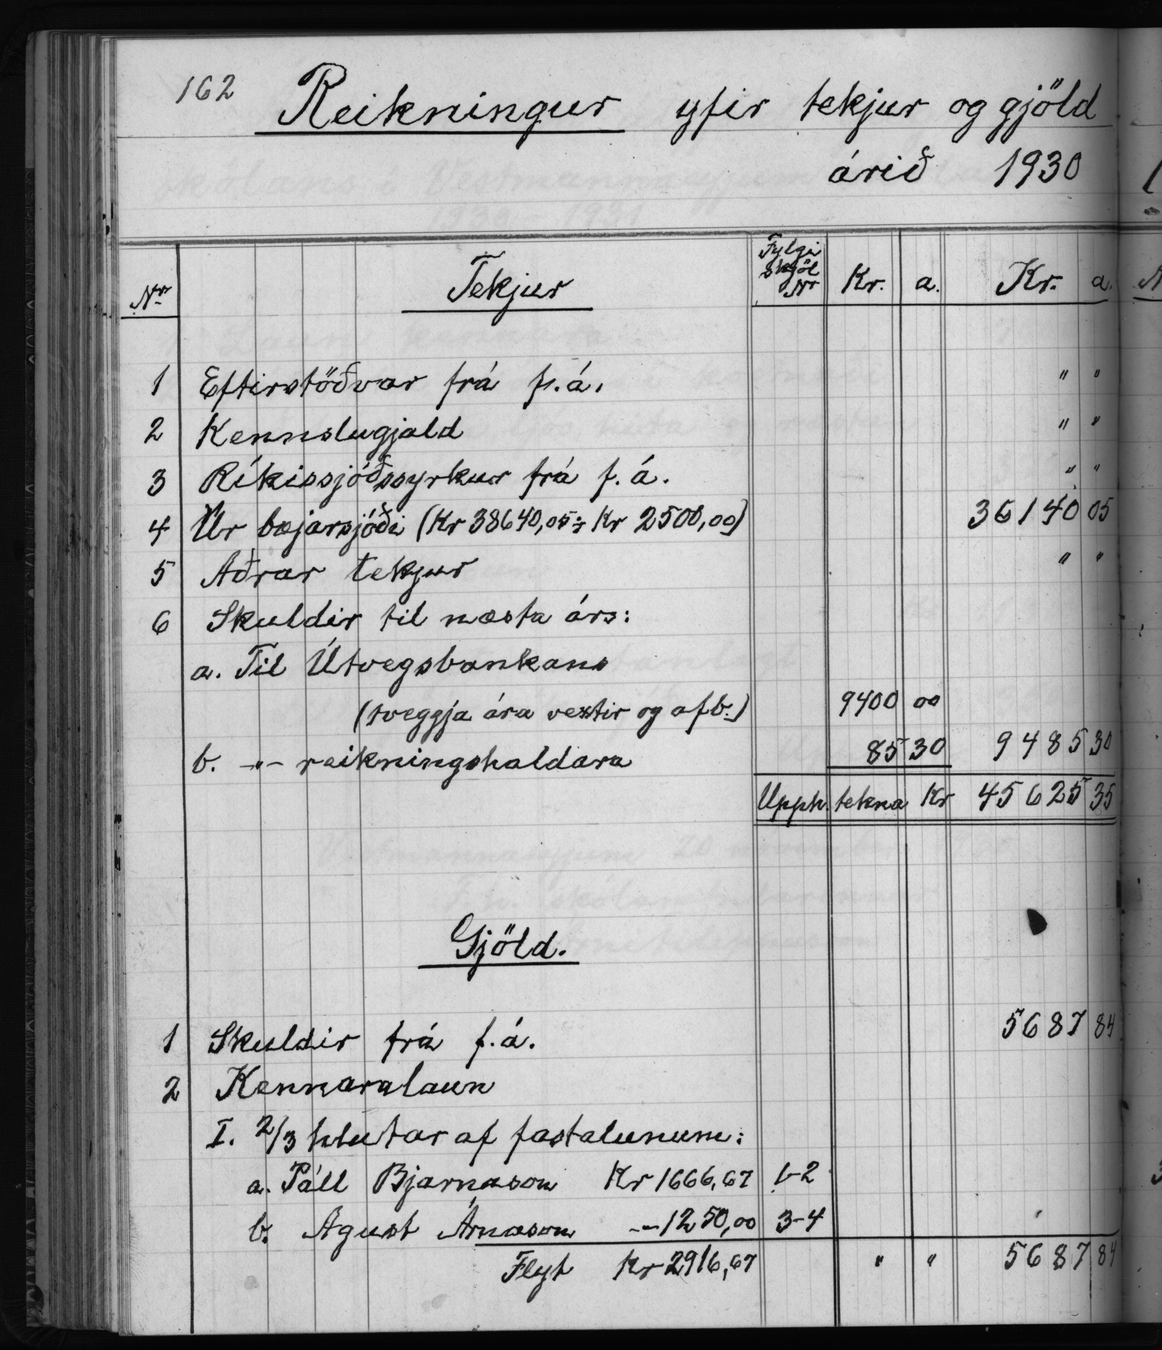 162 Reikningur yfir tekjur og gjöld
árið 1930
Nr. Tekjur Fylgi skjöl Nr Kr. a. Kr. a.
1 Eftirstöðvar frá f.á. " "
2 Kennslugjald " "
3 Ríkissjóðsstyrkur frá f.á. " "
4 Úr bæjarsjóði (Kr 38640,05 ÷ Kr 2500,00) 36140 05
5 Aðrar tekjur " "
6 Skuldir til næsta árs:
a. Til Útvegsbankans
(tveggja ára vextir og afb.) 9400 00
b. -"- reikningshaldara 85 30 9485 30
Upph. tekna Kr 45625 35
Gjöld.
1 Skuldir frá f.á. 5687 84
2 Kennaralaun
I. 2/3 hlutar af fastalunum:
a. Páll Bjarnason Kr 1666,67 1-2
b. Águst Árnason -"- 1250,00 3-4
Flyt Kr 2916,67 " " 5687 84